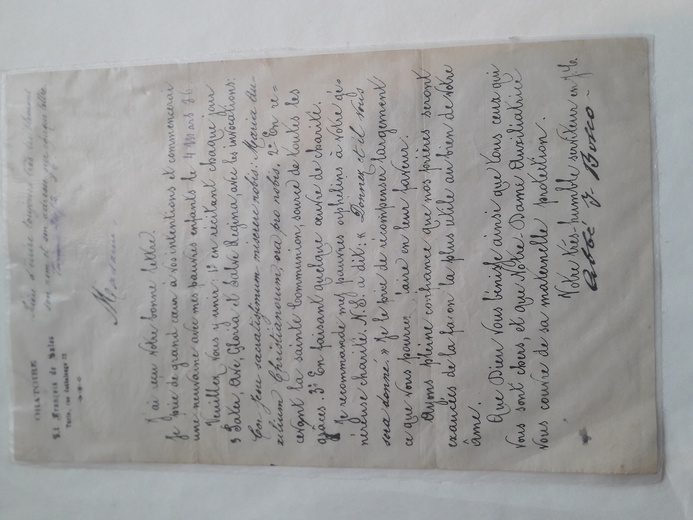 ORATOIRE
St François de Sales
Turin, rue Cottolengo 32
Monsieur
J'ai reçu Votre bonne lettre.
Je prie de grand cœur à vos intentions et commencerai
une neuvaine avec mes pauvres enfants le 4 Mars 86
Veuillez Vous y unir: 1º en récitant chaque jour
3 Pater, Ave, Gloria et Salve Regina, avec les invocations:
Cor Jesu sacratissimum miserere nobis: Maria Au-
xilium Christianorum, ora pro nobis. 2º En re-
cevant la Sainte Communion, source de toutes les
grâces. 3º En faisant quelque œuvre de charité.
Je recommande mes pauvres orphelins à Votre gé-
néreuse charité. N.S. a dit: « Donnez et il vous
sera donné. » Je le prie de récompenser largement
ce que Vous pourrez faire en leur faveur.
Ayons pleine confiance que nos prières seront
exaucées de la façon la plus utile au bien de Votre
âme.
Que Dieu Vous bénisse ainsi que tous ceux qui
Vous sont chers, et que Notre-Dame Auxiliatrice
Vous couvre de sa maternelle protection.
Votre très-humble serviteur en J.
Abbé J. Bosco